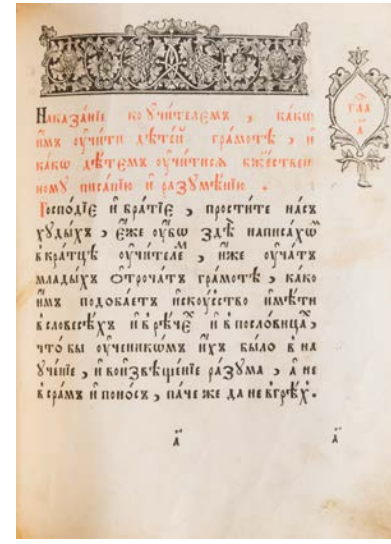 Наказа́нїе ко оу҆чи́телемъ , ка́кѡ
и҆́мъ оу҆чи́ти дѣте́й гра́мотѣ , и҆
ка́кѡ дѣ́темъ оу҆чи́тисѧ бж҃е́ствен
ному писа́нїю и҆ разꙋмѣ́нїю .
Господїе и҆ бра́тїе , прости́те на́съ
хꙋды́хъ , є҆́же оу҆́бѡ здѣ̀ написа́хѡⷨ
вкра́тцѣ оу҆чи́телеⷨ , и҆́же оу҆ча́тъ
млады́хъ ѻ҆троча́тъ гра́мотѣ , ка́ко
и҆́мъ подоба́етъ и҆скꙋ́сство и҆мѣ́ти
всловесѣ́хъ и҆ врѣ́чеⷯ и҆ впосло́вицаⷯ ,
что́ бы оу҆ченикѡ́мъ и҆́хъ бы́ло в на
ꙋче́нїе , и҆ воизвѣще́нїе ра́зꙋма , а҆ не
всра́мъ и҆ поно́съ , па́че же да не вгрѣ́хъ .
гла
а҃
а҃
а҃